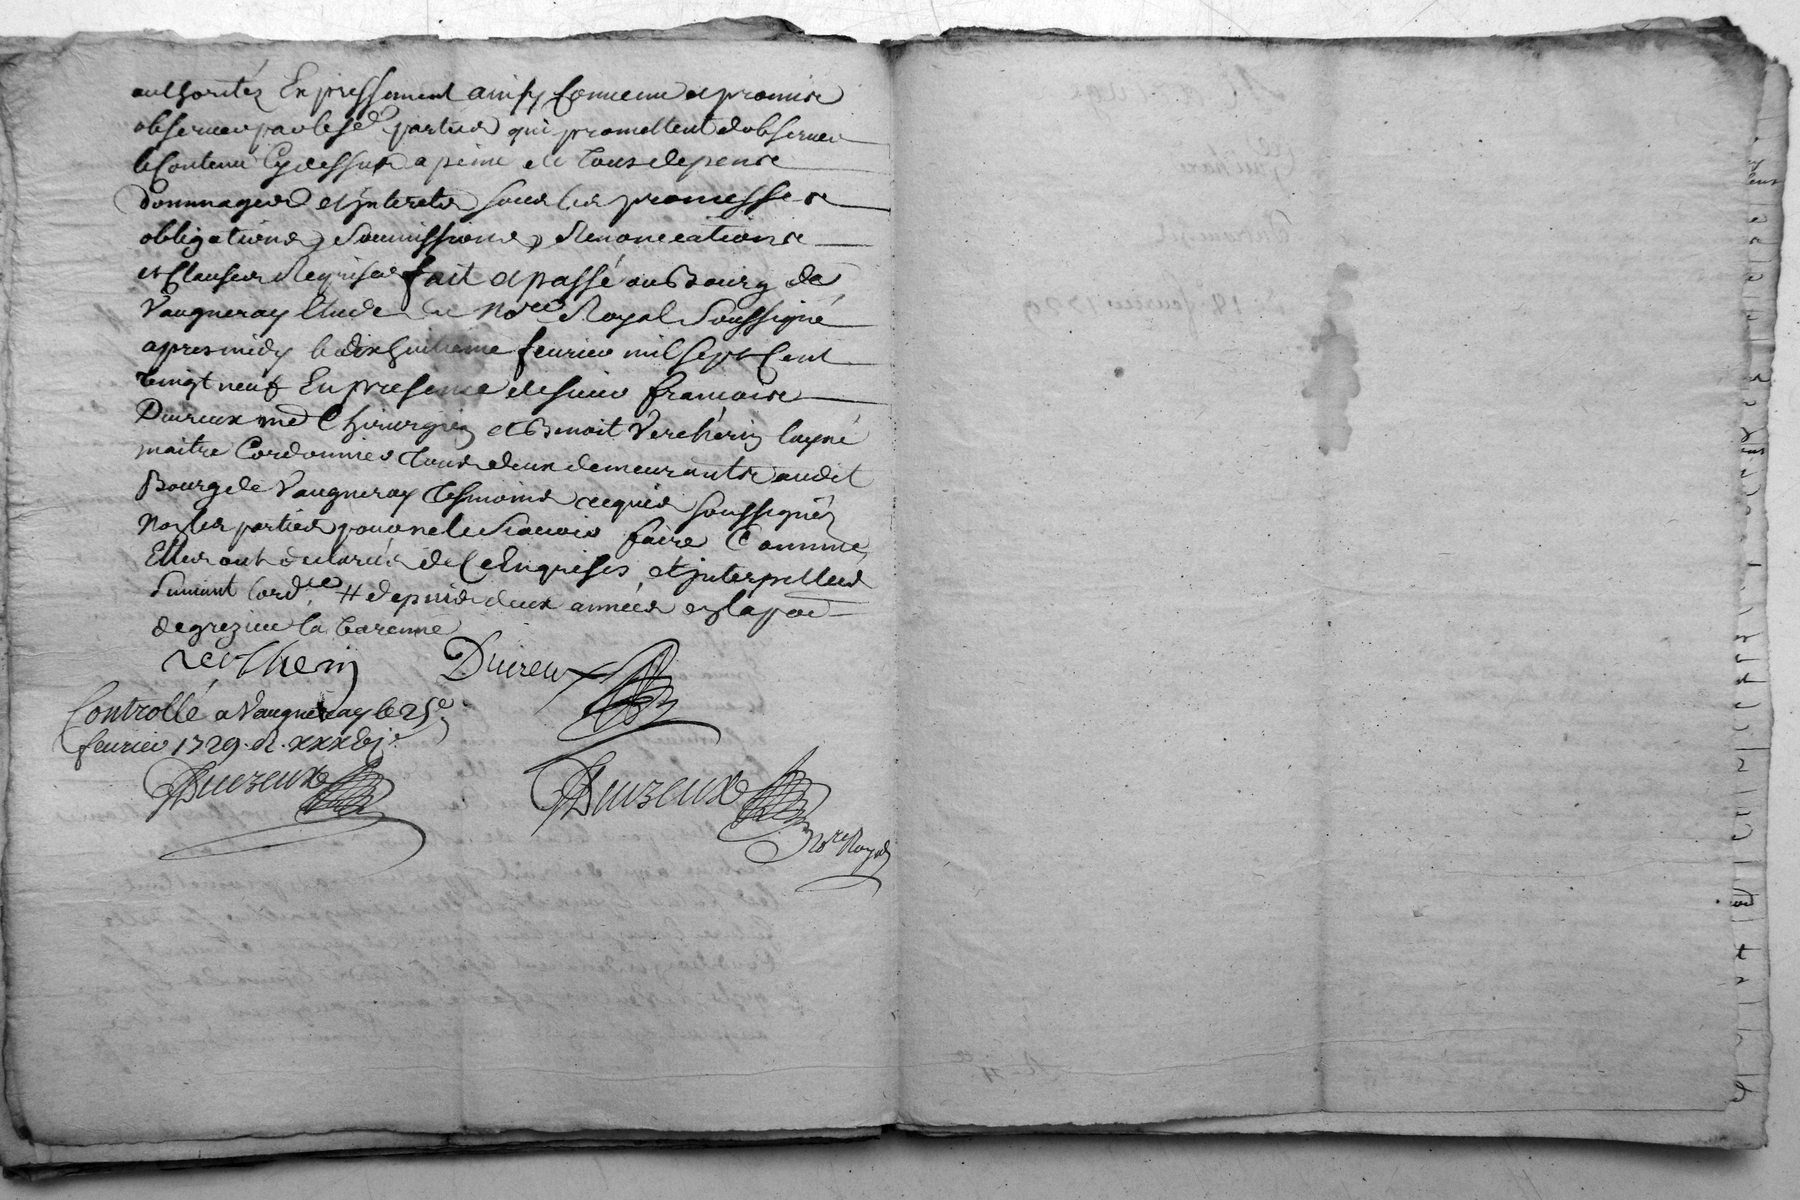 authoritéz Expressement ainsy Convenu et promise
observer par lesd. parties qui promettent dobserver
le Contenu Cy dessus a peine de Tous depense
Dommages et Interets sous les promesse
obligations, Soumissions, Renonciations
et Clauses Requises fait et passé au Bourg de
Vaugneray Etude de Nore. Royal Soussigné
apres midy le dix huitieme feuvrier mil sept Cent
vingt neuf En presence de sieur francois
Duireux me Chirurgien et Benoit Verchérin layné
maitre Cordonnier Tous deux demeurants audit
Bourg de Vaugneray Tesmoins requis soussignéz
Non les parties pour ne le Scavoir faire Comme
Elles ont declarés de Ce Enquises et Interpellees
Suivant lordce. # depuis deux années en la par
de grezieu la Varenne
vercherin Duireux
Controllé a Vaugneray le 25e
feuvrier 1729. R. xxxvj s.
Duireux Duireux
Nore Royal
18e feuvrier 1729